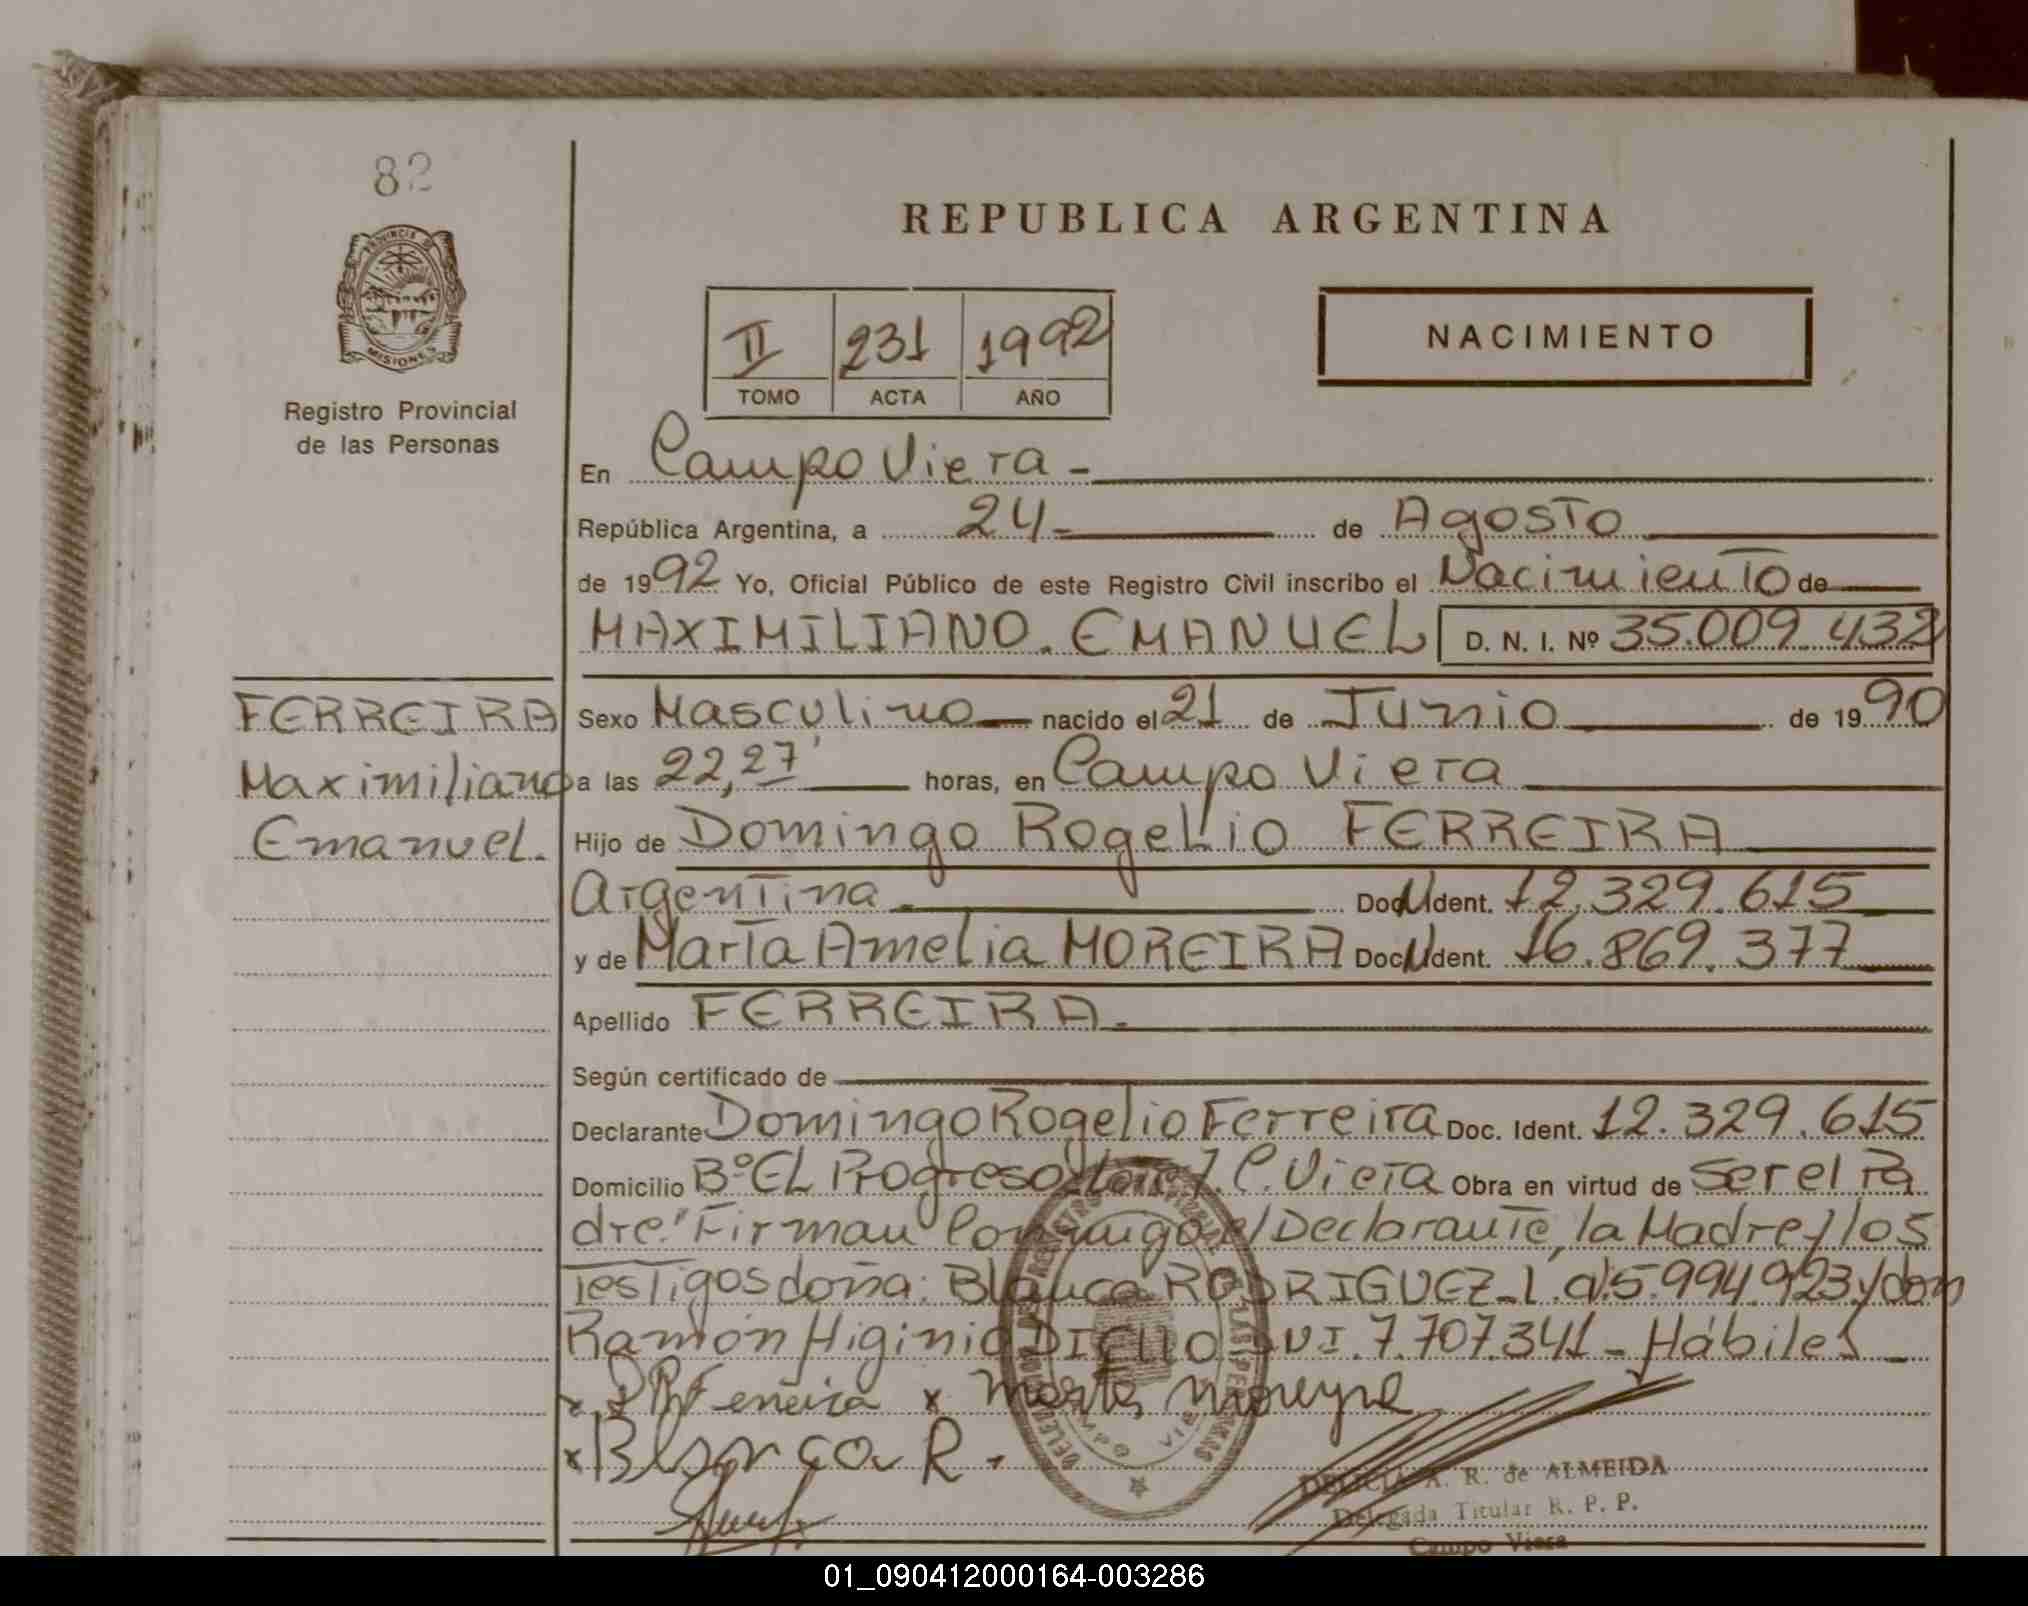 82
PROVINCIA DE
MISIONES
Registro Provincial
de las Personas
REPUBLICA ARGENTINA
II 231 1992
TOMO ACTA AÑO
NACIMIENTO
En Campo Viera -
República Argentina, a 24- de Agosto
de 1992 Yo, Oficial Público de este Registro Civil inscribo el Nacimiento de
MAXIMILIANO. EMANUEL D. N. I. Nº 35.009.432
FERREIRA
Maximiliano
Emanuel.
Sexo Masculino nacido el 21 de Junio de 1990
a las 22,27' horas, en Campo Viera
Hijo de Domingo Rogelio FERREIRA
Argentina. Doc Ident. 12.329.615
y de Marta Amelia MOREIRA Doc Ident. 16.869.377
Apellido FERREIRA.
Según certificado de
Declarante Domingo Rogelio Ferreira Doc. Ident. 12.329.615
Domicilio Bº EL Progreso C. Viera Obra en virtud de Ser el Pa
dre." Firman Conmigo el Declarante, la Madre y los
Testigos doña: Blanca RODRIGUEZ- 5.994.923 y don
Ramón Higinio 7.707.341 - Hábiles
x Ferreira x Marta Moreyra
x Blanca R.
DELICIA A. R. de ALMEIDA
Delegada Titular R. P. P.
Campo Viera
01_090412000164-003286